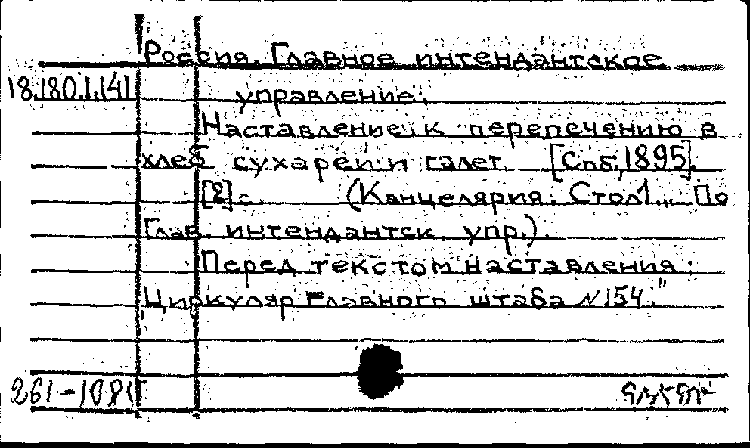 Россия. Главное интендантское
18.180.1.141
управление.
Наставление к перепечению в
хлеб сухарей и галет. [Спб, 1895].
[2] с. (Канцелярия. Стол 1. По
Глав. интендантск. упр.).
Перед текстом наставления:
Циркуляр Главного штаба №154."
261-1081